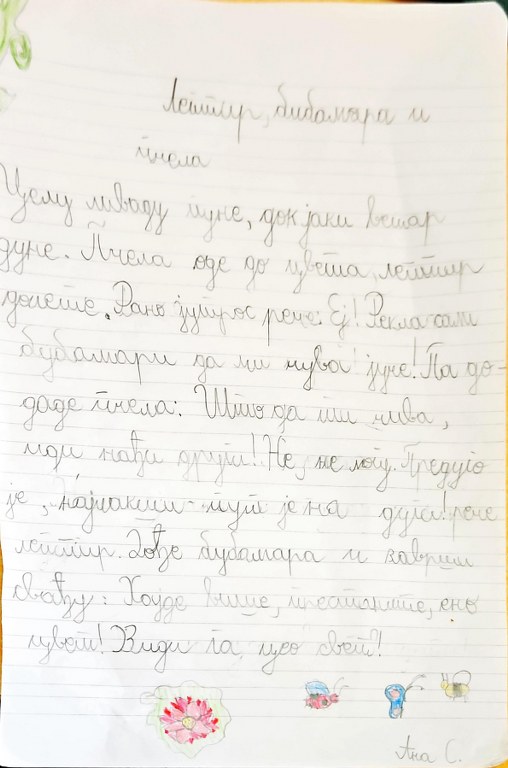 Лептир, бубамара и
пчела
Целу ливаду пуне, док јаки ветар
дуне. Пчела оде до цвета, лептир
долете. Рано јутрос рече: Еј! Рекла сам
бубамари да ми чува јуне! Па до-
даде пчела: Што да ти чива,
иди нађи други! Не, не могу. Предуго
је, најмањи пут је на дуги! рече
лептир. Дође бубамара и заврши
свађу: Хајде више, престаните, ено
цвет! Види га, цео свет!
Ана С.